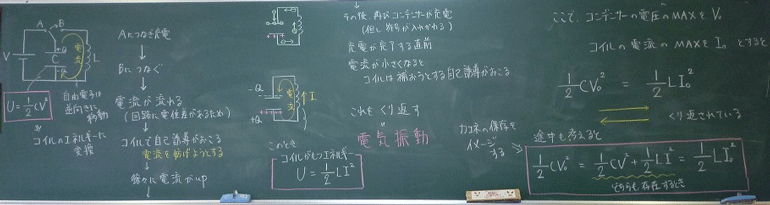 A B
V
C
+Q
L
電流
自由電子は
逆向きに移動
U=1/2CV²
コイルのエネルギーに
変換
Aにつなぎ充電
↓
Bにつなぐ
↓
電流が流れる
(回路に電位差があるため)
↓
コイルで自己誘導がおこる
電流を妨げようとする
↓
徐々に電流がup
↓
-Q
+Q
電流
I
このとき
コイルがもつエネルギー
U=1/2LI²
その後、再びコンデンサーが充電
(但し符号が入れかわる)
充電が完了する直前
電流が小さくなると
コイルは補おうとする自己誘導がおこる
これをくり返す
電気振動
ここで、コンデンサーの電圧のMAXをV₀
コイルの電流のMAXをI₀とすると
1/2CV₀²=1/2LI₀²
くり返されている
エネの保存を
イメージ
する
途中も考えると
1/2CV₀²=1/2CV²+1/2LI²=1/2LI₀²
どちらも存在するとき